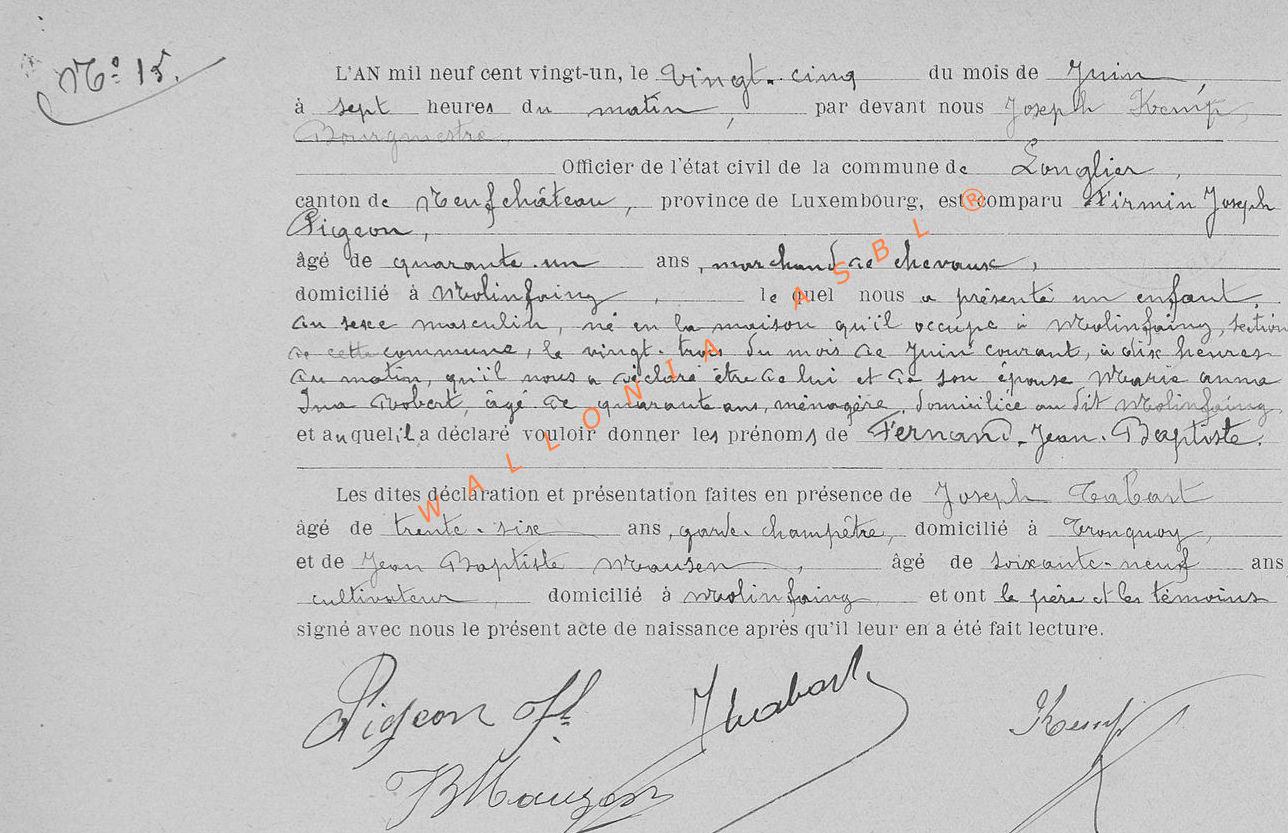 N° 15.
L'AN mil neuf cent vingt-un, le vingt-cinq du mois de Juin,
à sept heures du matin, par devant nous Joseph Kemp,
Bourgmestre,
Officier de l'état civil de la commune de Longlier,
canton de Neufchâteau, province de Luxembourg, est comparu Firmin Joseph
Pigeon,
âgé de quarante-un ans, marchand de chevaux,
domicilié à Molinfaing, lequel nous a présenté un enfant
du sexe masculin, né en la maison qu'il occupe à Molinfaing, section
de cette commune, le vingt-trois du mois de Juin courant, à dix heures
du matin, qu'il nous a déclaré être de lui et de son épouse Marie Anna
Robert, âgé de quarante ans, ménagère, domiciliée au dit Molinfaing
et auquel il a déclaré vouloir donner les prénoms de Fernand-Jean-Baptiste.
Les dites déclaration et présentation faites en présence de Joseph Tabart
âgé de trente-six ans, garde-champêtre, domicilié à Tronquoy,
et de Jean Baptiste Mausen, âgé de soixante-neuf ans
cultivateur, domicilié à Molinfaing et ont le père et les témoins
signé avec nous le présent acte de naissance après qu'il leur en a été fait lecture.
Pigeon Kemp
JBMauzen
WALLONIA ASBL ®